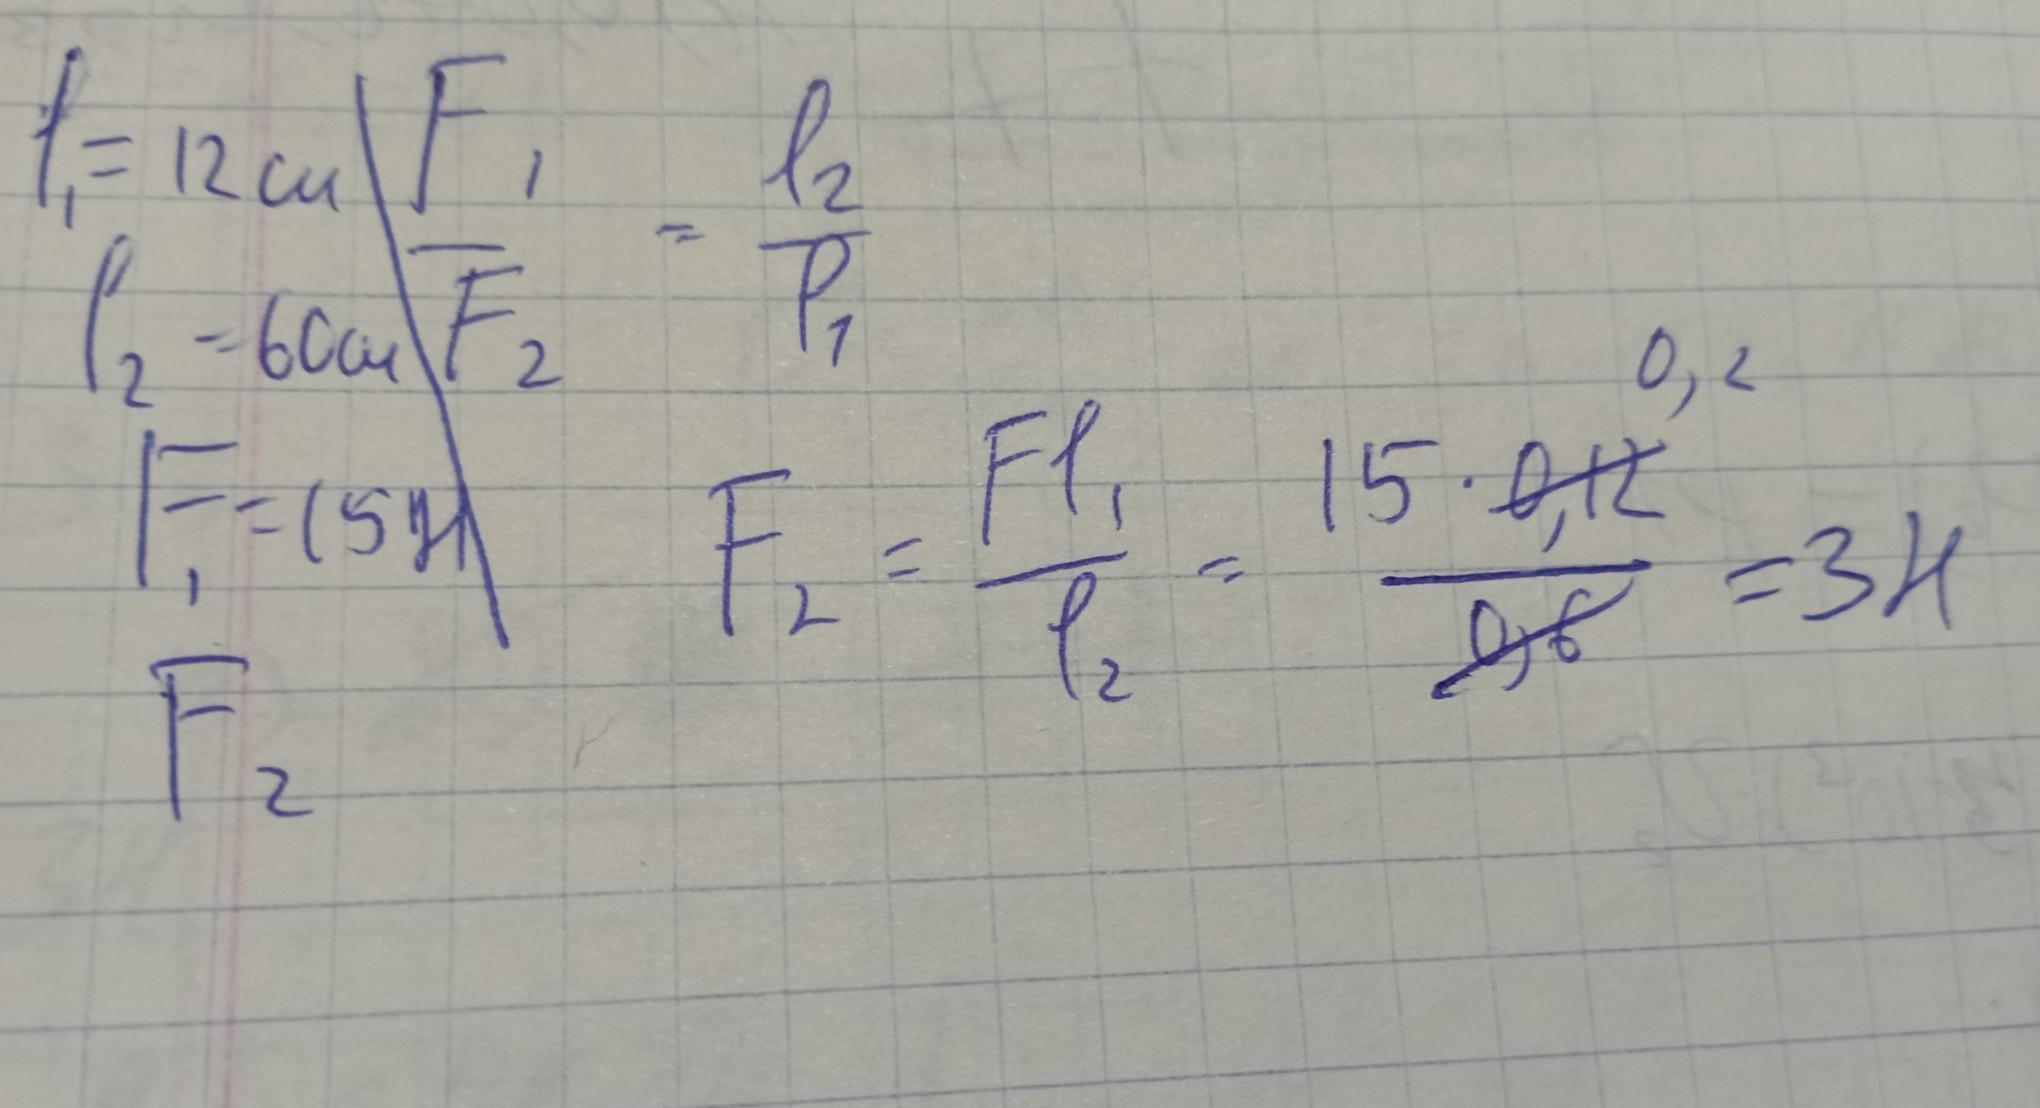 l₁ = 12 см
l₂ = 60 см
F₁ = 15 Н
F₂
F₁/F₂ = l₂/l₁
F₂ = Fl₁/l₂ = 15 · 0,12/0,6 = 3 Н
0,2